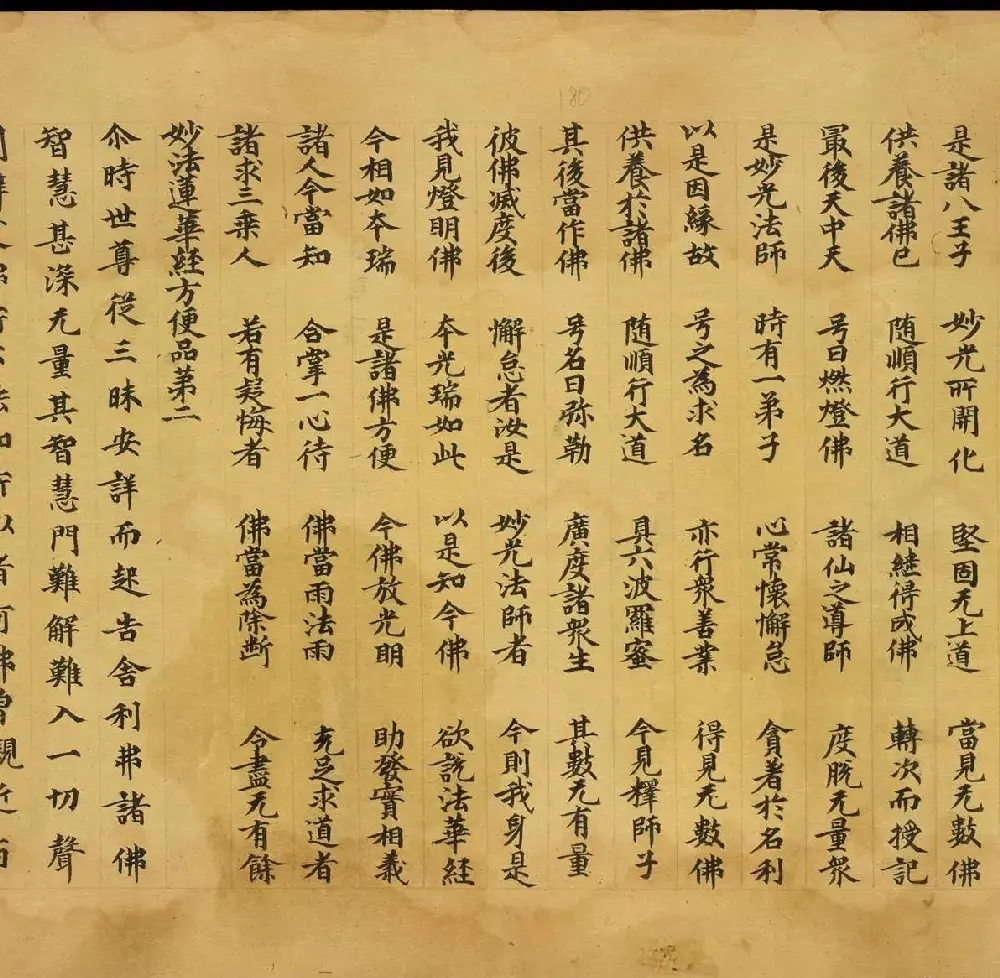 180
是諸八王子 妙光所開化 堅固无上道 當見无數佛
供養諸佛已 随順行大道 相継得成佛 轉次而授記
冣後天中天 号曰燃燈佛 諸仙之導師 度脫无量眾
是妙光法師 時有一弟子 心常懷懈怠 貪著於名利
以是因緣故 号之為求名 亦行眾善業 得見无數佛
供養於諸佛 随順行大道 具六波羅蜜 今見釋師子
其後當作佛 号名曰弥勒 廣度諸眾生 其數无有量
彼佛滅度後 懈怠者汝是 妙光法師者 今則我身是
我見燈明佛 本光瑞如此 以是知今佛 欲說法華経
今相如本瑞 是諸佛方便 今佛放光明 助發實相義
諸人今當知 合掌一心待 佛當雨法雨 充足求道者
諸求三乗人 若有疑悔者 佛當為除断 令盡无有餘
妙法蓮華経方便品第二
尒時世尊從三昧安詳而起告舍利弗諸佛
智慧甚深无量其智慧門難解難入一切聲